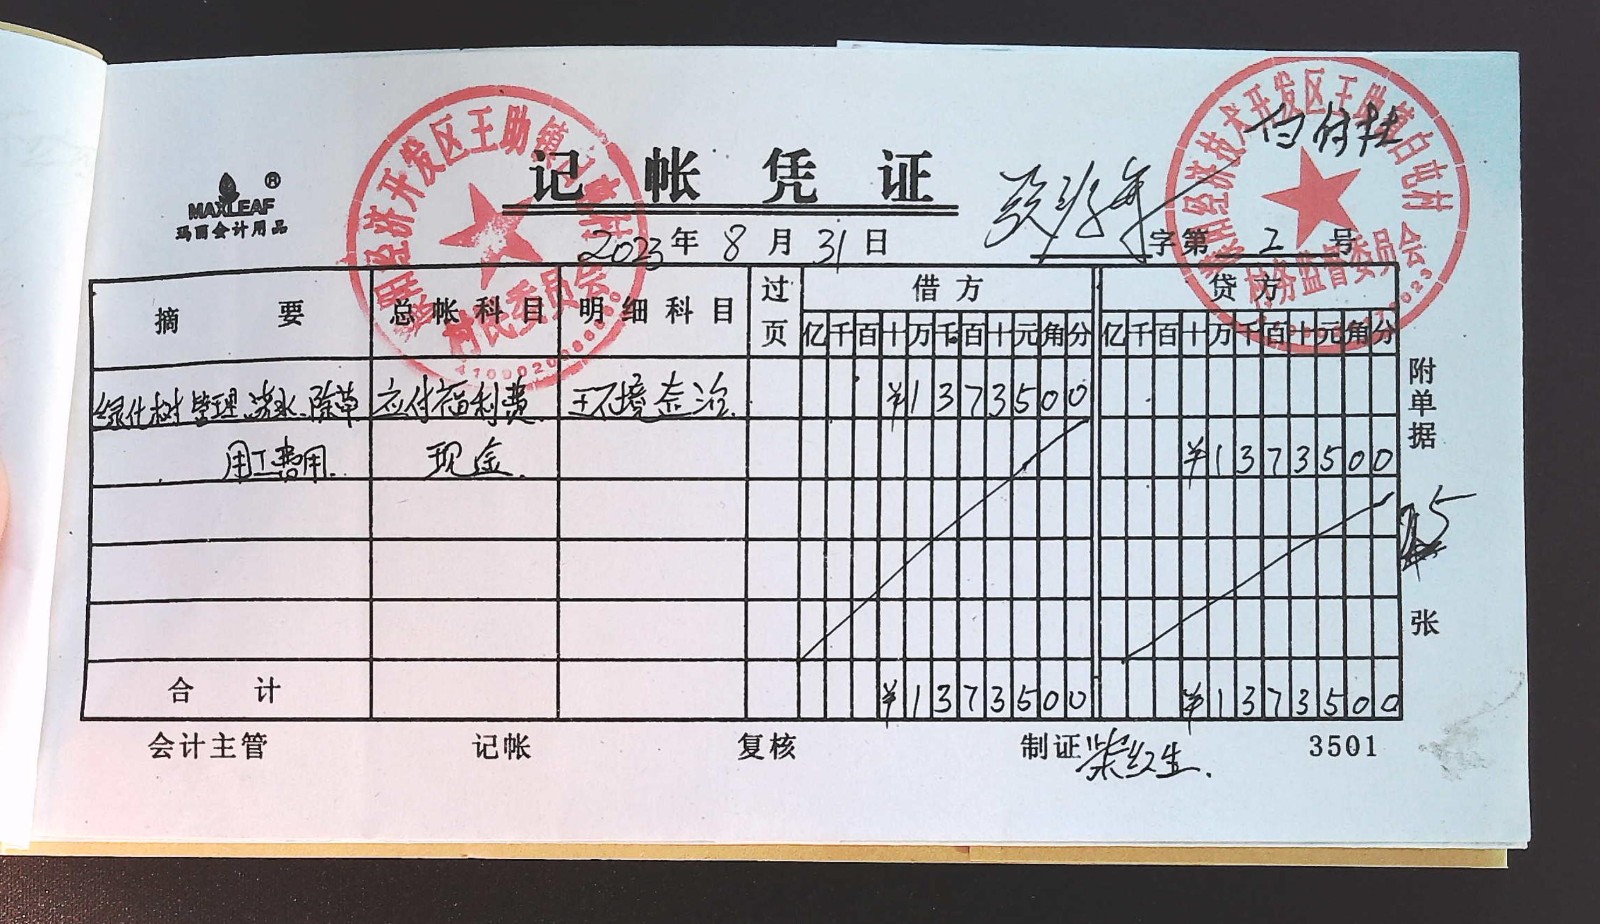 记帐凭证
MAXLEAF ®
玛丽会计用品
2023年8月31日
字第 2 号
摘要 总帐科目 明细科目 过页 借方 贷方
亿千百十万千百十元角分 亿千百十万千百十元角分
绿化树管理.浇水.除草 应付福利费 环境治 ¥1373500
用工费用. 现金. ¥1373500
合计 ¥1373500 ¥1373500
附单据 5 张
会计主管 记帐 复核 制证 柴红生. 3501
经济开发区王助镇
村民委员会
经济技术开发区王助镇白屯村
村务监督委员会